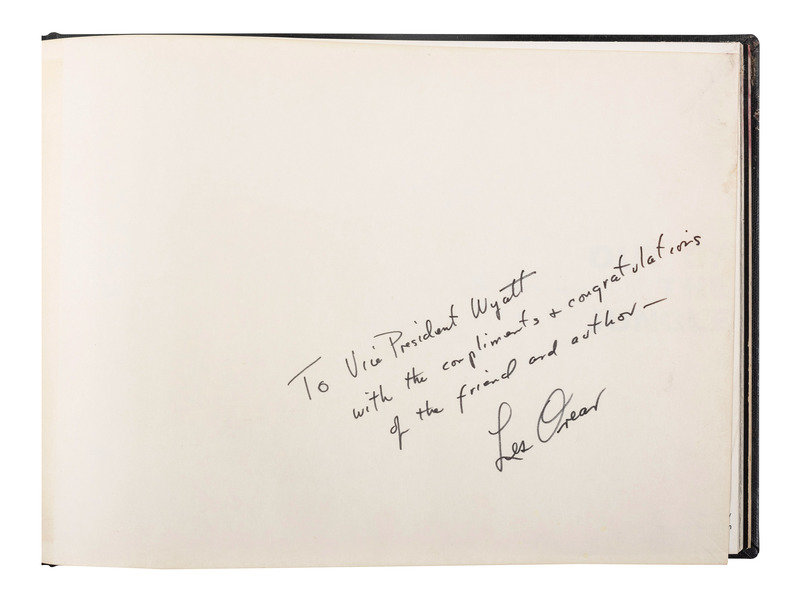 To Vice President Wyatt
with the compliments & congratulations
of the friend and author—
Les Orear